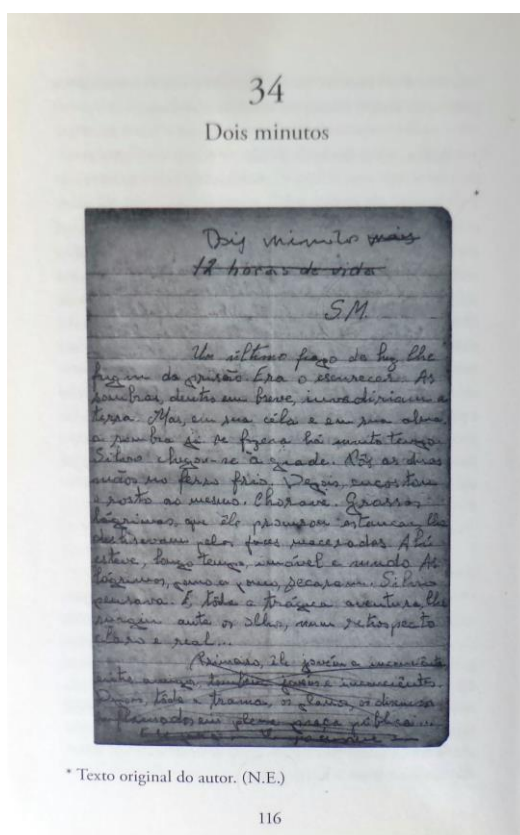 34
Dois minutos
Dois minutos mais
12 horas de vida
S.M.
Um último de luz lhe
da prisão. Era o escurecer. As
sombras, dentro em breve, invadiriam a
terra. Mas, em sua cela e em sua alma,
a sombra já se fizera há muito tempo.
Silvio chegou-se à grade. Pôs as duas
mãos no ferro frio. Depois, encostou
o rosto ao mesmo. Chorava. Grossas
lágrimas, que êle procurou estancar, lhe
pelas faces maceradas. Ali
esteve, longo tempo, imóvel e mudo. As
lágrimas, pouco a pouco, secaram. Silvio
pensava. E, tôda a trágica aventura lhe
surgiu ante os olhos, num retrospecto
claro e real...
Primeiro, êle jovem e inconsciente
entre amigos, também jovens e inconscientes.
Depois, tôda a trama, os planos, os discursos
inflamados em plena praça pública...
* Texto original do autor. (N.E.)
116